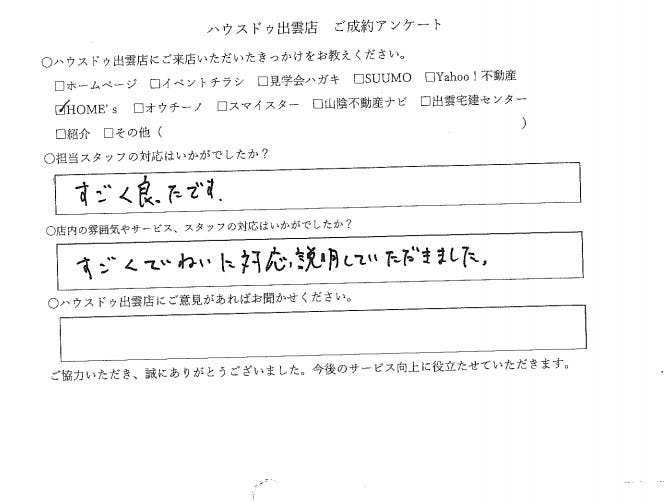 ハウスドゥ出雲店　ご成約アンケート
○ハウスドゥ出雲店にご来店いただいたきっかけをお教えください。
□ホームページ　□イベントチラシ　□見学会ハガキ　□SUUMO　□Yahoo！不動産
☑HOME's　□オウチーノ　□スマイスター　□山陰不動産ナビ　□出雲宅建センター
□紹介　□その他（　　　　　　　　　　　　　　　　　　　　　　　）
○担当スタッフの対応はいかがでしたか？
すごく良ったです.
○店内の雰囲気やサービス、スタッフの対応はいかがでしたか？
すごくていねいに対応,説明していただきました。
○ハウスドゥ出雲店にご意見があればお聞かせください。
ご協力いただき、誠にありがとうございました。今後のサービス向上に役立たせていただきます。